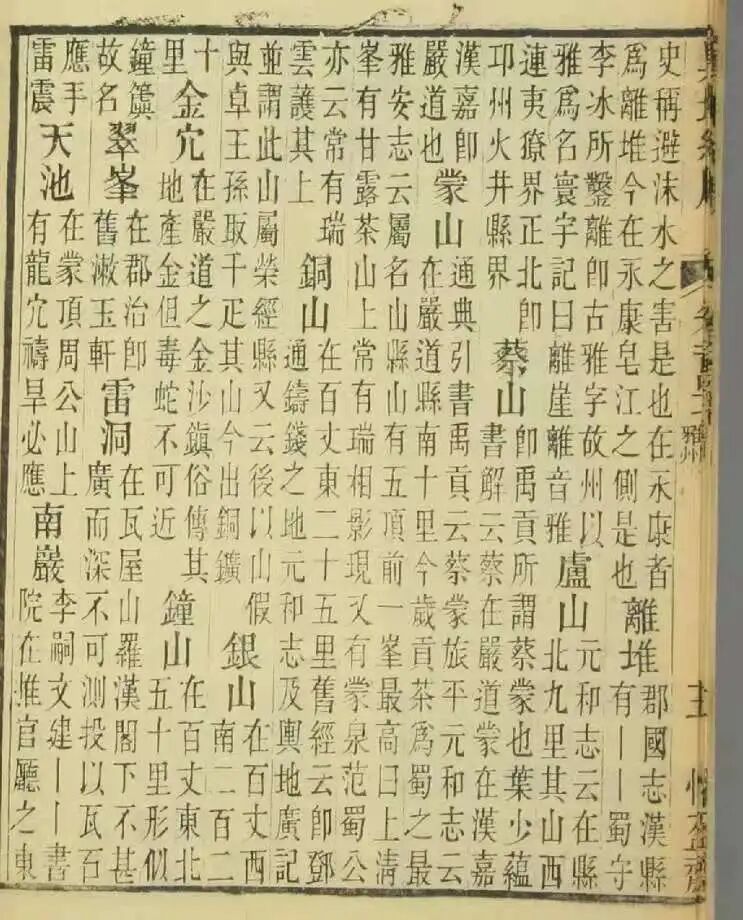 史稱避沫水之害是也在永康者
為離堆今在永康皂江之側是也
離堆
郡國志漢縣
有——蜀守
李冰所鑿離即古雅字故州以
雅為名寰宇記曰離崖離音雅
盧山
元和志云在縣
北九里其山西
連夷獠界正北即
邛州火井縣界
蔡山
即禹貢所謂蔡蒙也葉少蘊
書解云蔡在嚴道蒙在漢嘉
漢嘉即
嚴道也
蒙山
通典引書禹貢云蔡蒙旅平元和志云
在嚴道縣南十里今歲貢茶為蜀之最
雅安志云屬名山縣山有五頂前一峯最高曰上清
峯有甘露茶山上常有瑞相影現又有蒙泉范蜀公
亦云常有瑞
雲護其上
銅山
在百丈東二十五里舊經云即鄧
通鑄錢之地元和志及輿地廣記
並謂此山屬榮經縣又云後以山假
與卓王孫取千疋其山今出銅鑛
銀山
在百丈西
南二百二
十
里
金穴
在嚴道之金沙鎮俗傳其
地產金但毒蛇不可近
鐘山
在百丈東北
五十里形似
鐘簴
故名
翠峯
在郡治即
舊漱玉軒
雷洞
在瓦屋山羅漢閣下不甚
廣而深不可測投以瓦石
應手
雷震
天池
在蒙頂周公山上
有龍穴禱旱必應
南巖
李嗣文建——書
院在推官廳之東
雅州